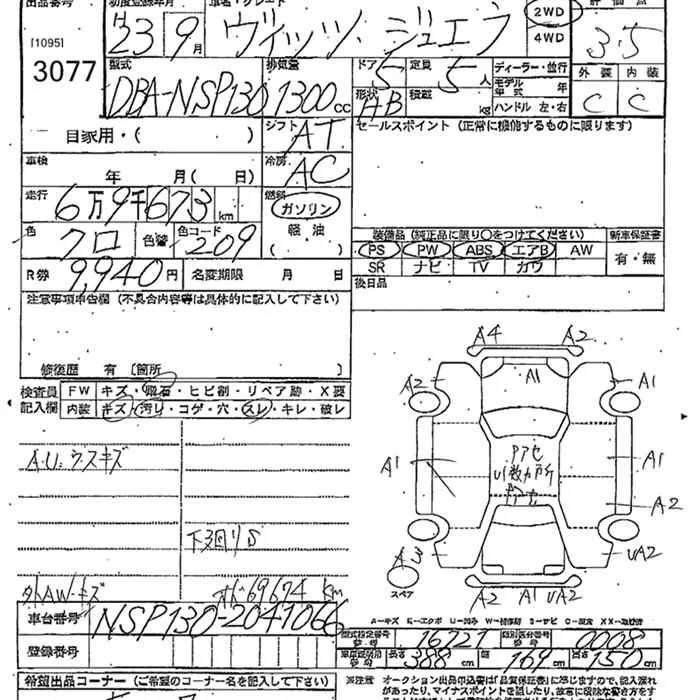 出品番号 初度登録年月 車名・グレード 2WD 評価点
[1095] H23年9月 ヴィッツ ジュエラ 4WD 3.5
3077
型式 排気量 ドア 定員 ディーラー・並行 外装 内装
DBA-NSP130 1300cc 5 5人 モデル年式 年 C C
形状 AB 積載 kg ハンドル 左・右
自家用・( ) シフト AT セールスポイント (正常に機能するものに限ります)
車検 年 月( 日) 冷房 AC
走行 6万9千673km 燃料 ガソリン
色 クロ 色替 色コード 209 軽油 ( )
装備品 (純正品に限り○をつけてください) 新車保証書
PS PW ABS エアB AW 有・無
SR ナビ TV カワ
R券 9,940円 名変期限 月 日 後日品
注意事項申告欄 (不具合内容等は具体的に記入して下さい)
修復歴 有〔箇所 〕
検査員 FW キズ・飛石・ヒビ割・リペア跡・X要
記入欄 内装 キズ・汚レ・コゲ・穴・スレ・キレ・破レ
A4 A2
A1
A2 A1
A1 A1
A2
A3 UA2
スペア
A2 A1 UA2
A.U.ウスキズ
下廻りS
外AWキズ 69674 km
車台番号 NSP130-2041066
A=キズ E=エクボ U=凹み W=補修跡 S=サビ C=腐食 XX=交換済
登録番号 型式指定番号 16721 類別区分番号 0008
長さ 388cm 幅 169cm 高さ 150cm
希望出品コーナー (ご希望のコーナー名を記入して下さい)
※注意 オークション出品申込書は「品質保証書」に準じますので、記入漏れ
があったり、マイナスポイントを話したり、故意に曖昧な書き方を